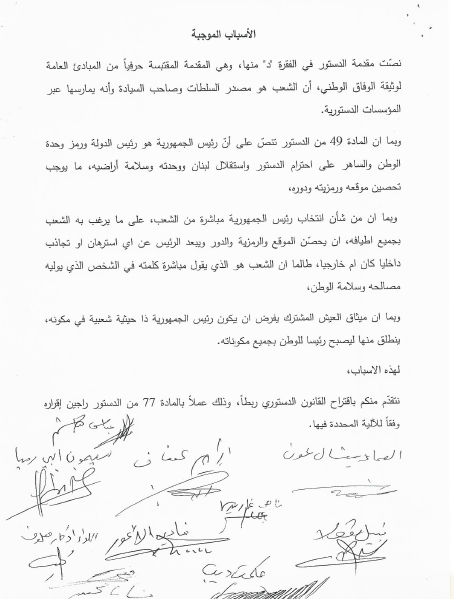 الأسباب الموجبة
نصّت مقدمة الدستور في الفقرة "د" منها، وهي المقدمة المقتبسة حرفياً من المبادئ العامة
لوثيقة الوفاق الوطني، أن الشعب هو مصدر السلطات وصاحب السيادة وأنه يمارسها عبر
المؤسسات الدستورية.
وبما ان المادة 49 من الدستور تنصّ على أنّ رئيس الجمهورية هو رئيس الدولة ورمز وحدة
الوطن والساهر على احترام الدستور واستقلال لبنان ووحدته وسلامة أراضيه، ما يوجب
تحصين موقعه ورمزيته ودوره،
وبما ان من شأن انتخاب رئيس الجمهورية مباشرة من الشعب، على ما يرغب به الشعب
بجميع اطيافه، ان يحصّن الموقع والرمزية والدور ويبعد الرئيس عن اي استرهان او تجاذب
داخليا كان ام خارجيا، طالما ان الشعب هو الذي يقول مباشرة كلمته في الشخص الذي يوليه
مصالحه وسلامة الوطن،
وبما ان ميثاق العيش المشترك يفرض ان يكون رئيس الجمهورية ذا حيثية شعبية في مكونه،
ينطلق منها ليصبح رئيسا للوطن بجميع مكوناته.
لهذه الاسباب،
نتقدّم منكم باقتراح القانون الدستوري ربطاً، وذلك عملاً بالمادة 77 من الدستور راجين إقراره
وفقاً للآلية المحددة فيها.
عباس هاشم
العماد ميشال عون
سيمون ابي رميا
ناجي غاريوس
نبيل نقولا
فادي الأعور
حكمت ديب